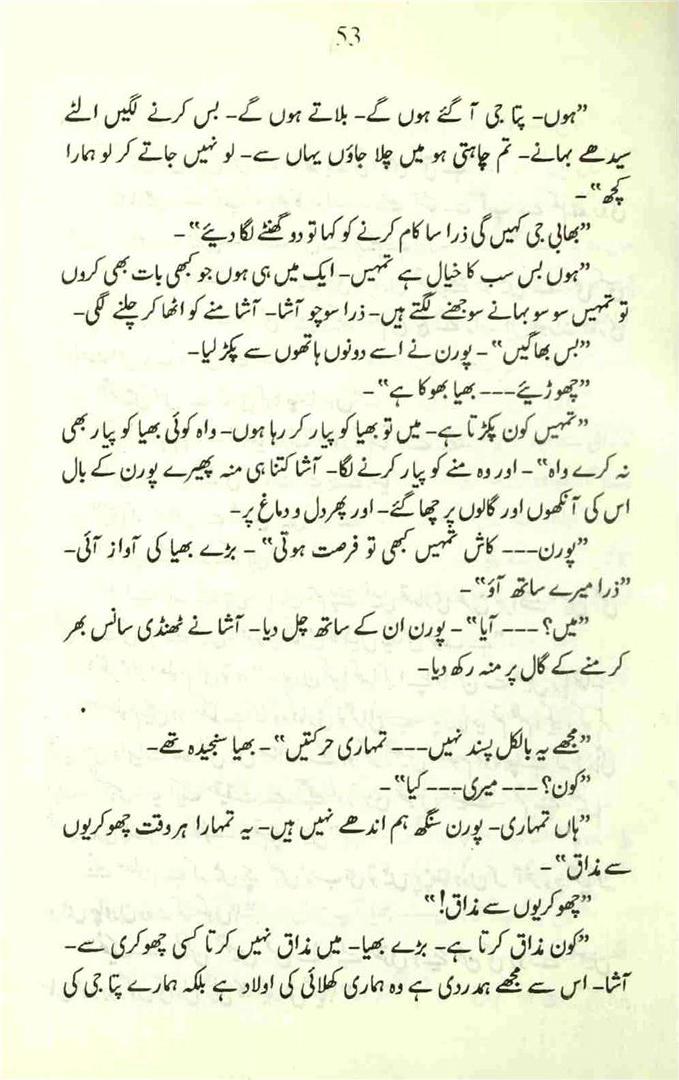 53
"ہوں۔ پتا جی آ گئے ہوں گے۔ بلاتے ہوں گے۔ بس کرنے لگیں الٹے
سیدھے بہانے۔ تم چاہتی ہو میں چلا جاؤں یہاں سے۔ لو نہیں جاتے کر لو ہمارا
کچھ"۔
"بھابی جی کہیں گی ذرا سا کام کرنے کو کہا تو دو گھنٹے لگا دیئے"۔
"ہوں بس سب کا خیال ہے تمہیں۔ ایک میں ہی ہوں جو کبھی بات بھی کروں
تو تمہیں سو سو بہانے سوجھنے لگتے ہیں۔ ذرا سوچو آشا۔ آشا منے کو اٹھا کر چلنے لگی۔
"بس بھاگیں"۔ پورن نے اسے دونوں ہاتھوں سے پکڑ لیا۔
"چھوڑیئے--- بھیا بھوکا ہے"۔
"تمہیں کون پکڑتا ہے۔ میں تو بھیا کو پیار کر رہا ہوں۔ واہ کوئی بھیا کو پیار بھی
نہ کرے واہ"۔ اور وہ منے کو پیار کرنے لگا۔ آشا کتنا ہی منہ پھیرے پورن کے بال
اس کی آنکھوں اور گالوں پر چھا گئے۔ اور پھر دل و دماغ پر۔
"پورن--- کاش تمہیں کبھی تو فرصت ہوتی"۔ بڑے بھیا کی آواز آئی۔
"ذرا میرے ساتھ آؤ"۔
"میں؟ --- آیا"۔ پورن ان کے ساتھ چل دیا۔ آشا نے ٹھنڈی سانس بھر
کر منے کے گال پر منہ رکھ دیا۔
"مجھے یہ بالکل پسند نہیں--- تمہاری حرکتیں"۔ بھیا سنجیدہ تھے۔
"کون؟ --- میری--- کیا"۔
"ہاں تمہاری۔ پورن سنگھ ہم اندھے نہیں ہیں۔ یہ تمہارا ہر وقت چھوکریوں
سے مذاق"۔
"چھوکریوں سے مذاق!"
"کون مذاق کرتا ہے۔ بڑے بھیا۔ میں مذاق نہیں کرتا کسی چھوکری سے۔
آشا۔ اس سے مجھے ہمدردی ہے وہ ہماری کھلائی کی اولاد ہے بلکہ ہمارے پتا جی کی